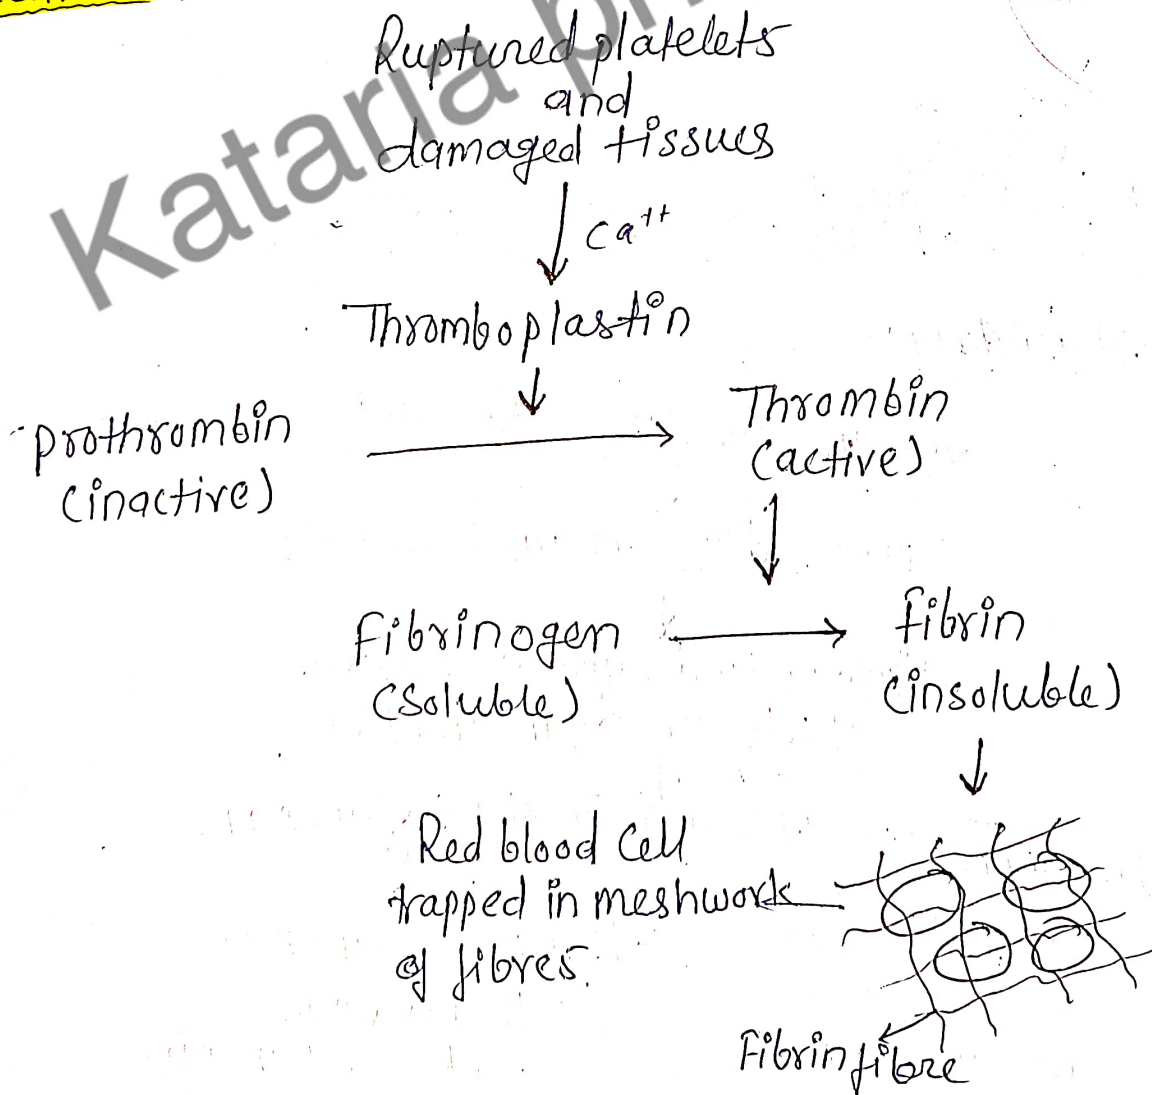 Kataria ph
Ruptured platelets
and
damaged tissues
Ca++
Thromboplastin
Prothrombin
(inactive)
Thrombin
(active)
Fibrinogen
(Soluble)
fibrin
(insoluble)
Red blood Cell
trapped in meshwork
of fibres.
Fibrin fibre